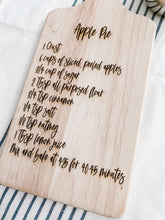 Apple Pie
1 Crust
6 cups of sliced, peeled apples
3/4 cup of sugar
2 Tbsp all purposed flour
3/4 tsp cinnamon
1/4 tsp salt
1/8 tsp nutmeg
1 Tbsp lemon juice
Mix and bake at 425 for 40-45 minutes